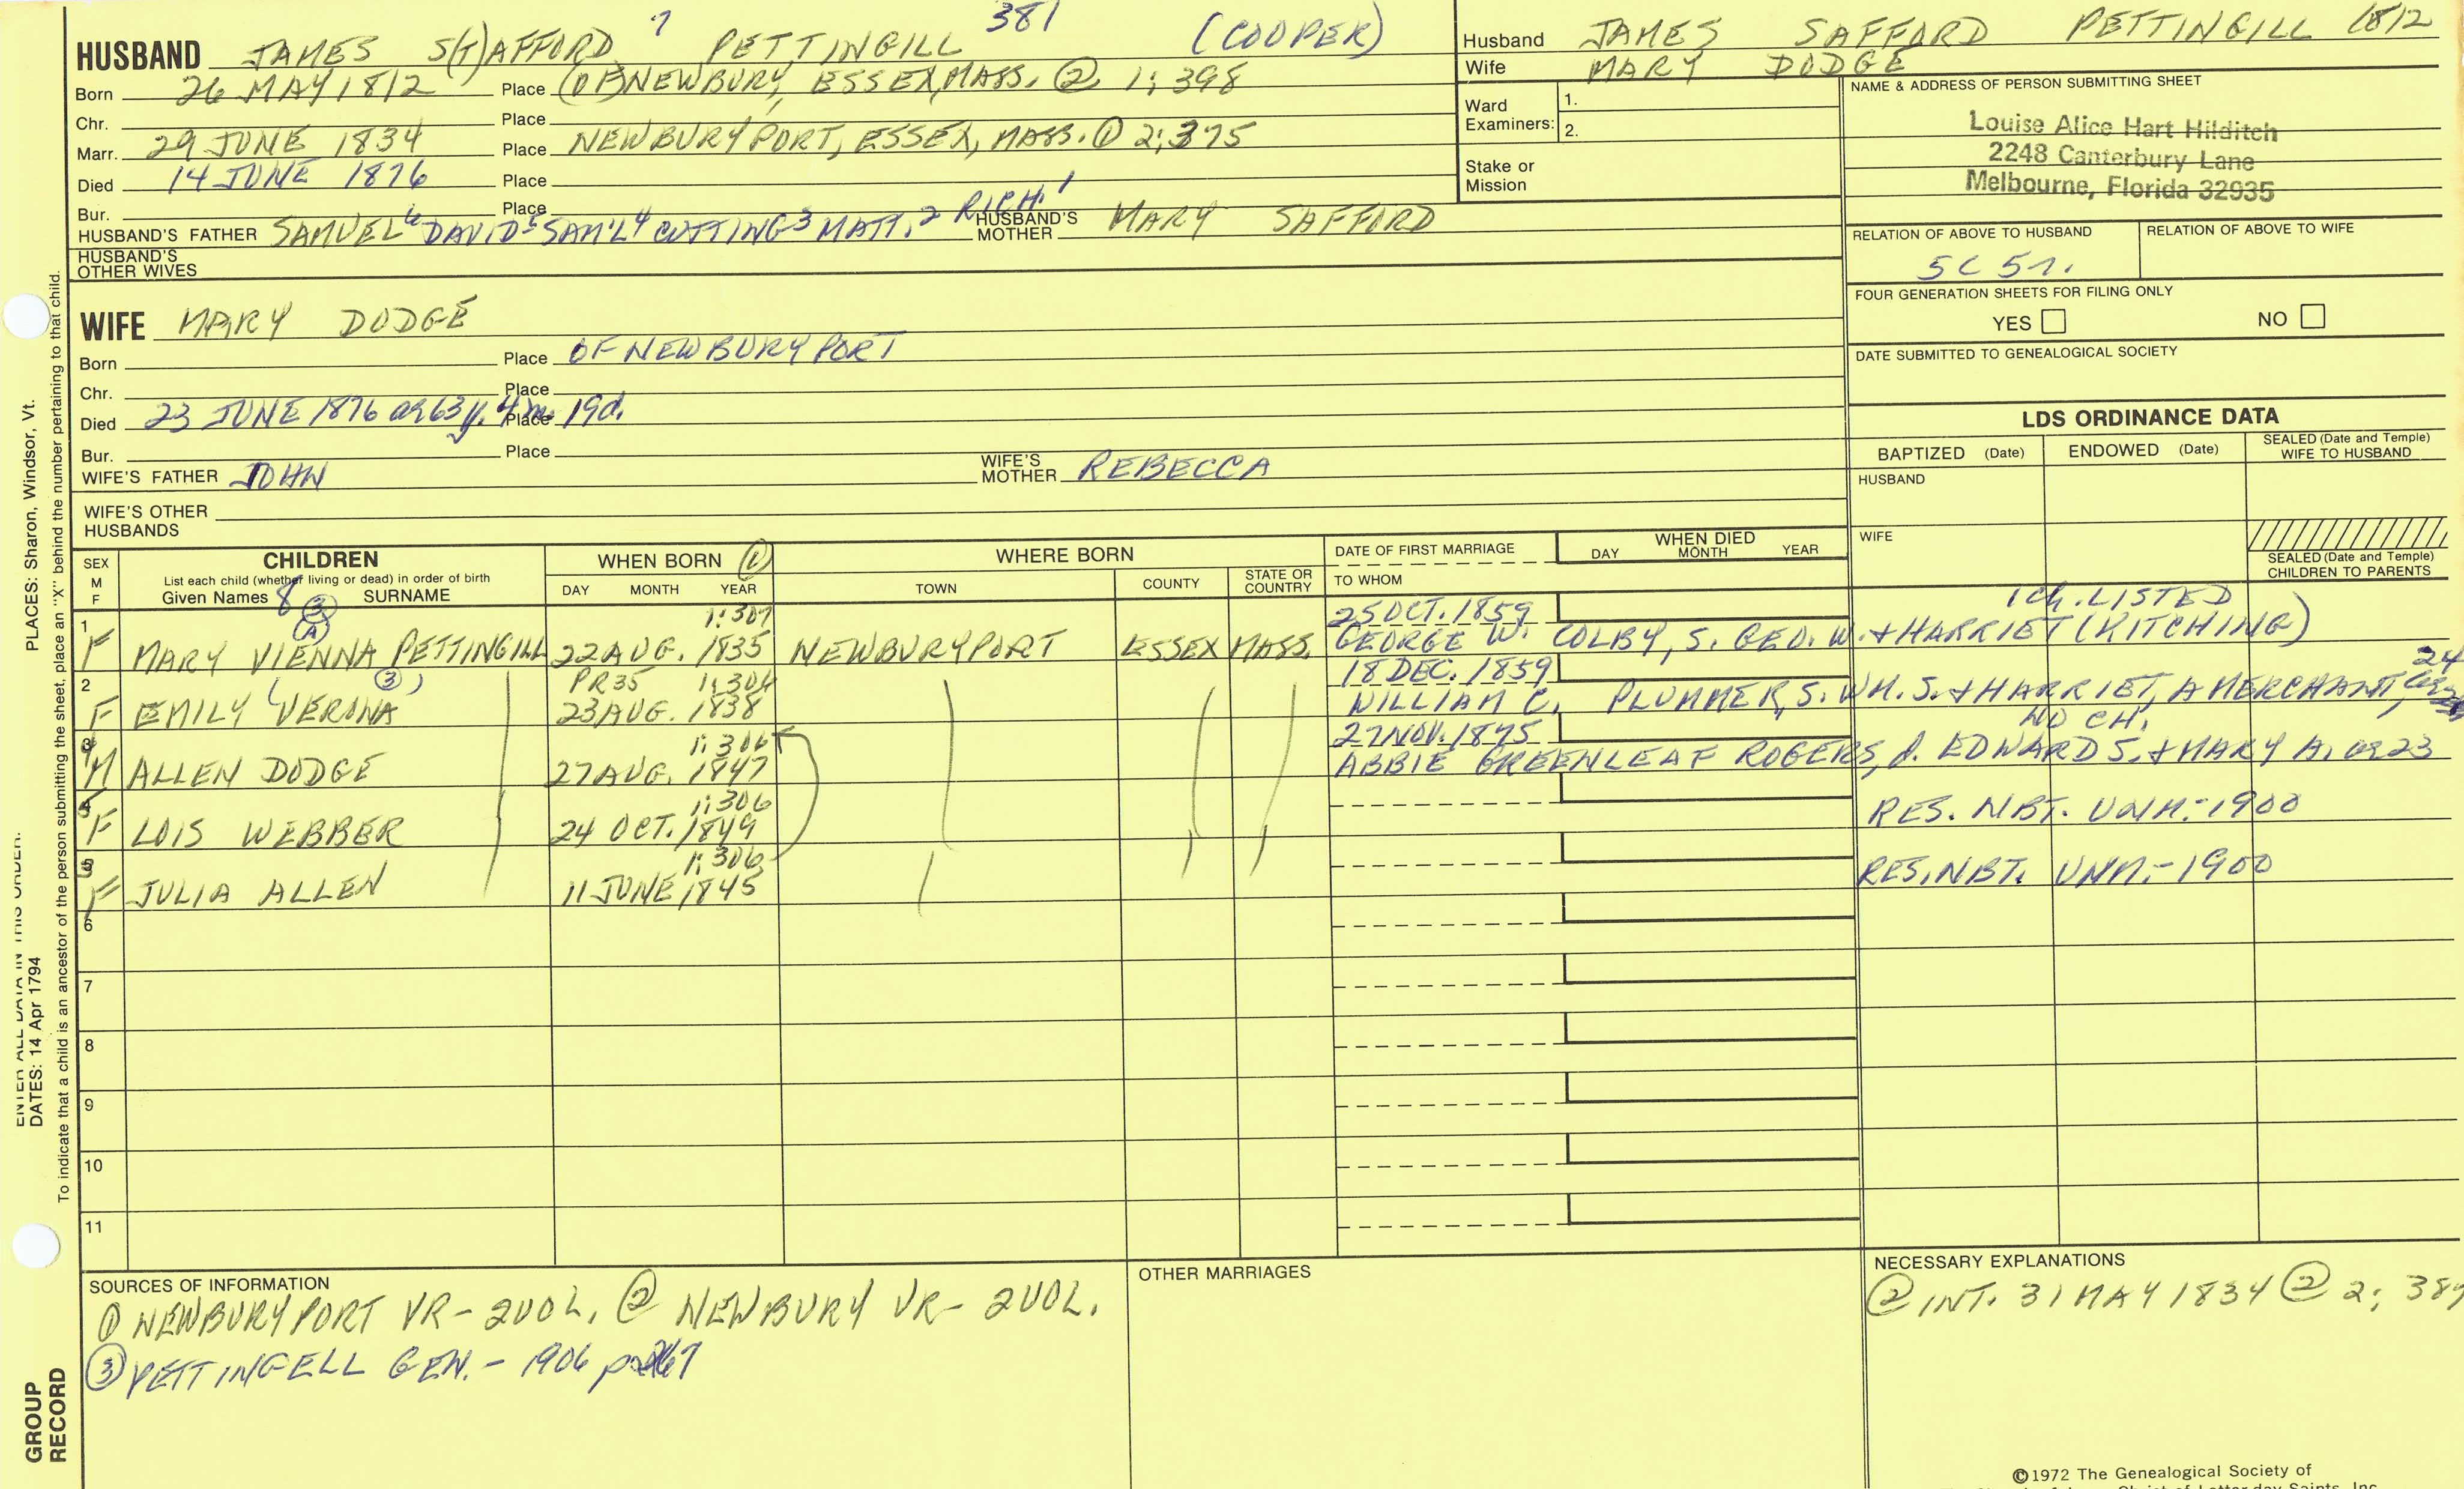 HUSBAND JAMES S(T)AFFORD 7 PETTINGILL 381 (COOPER)
Born 26 MAY 1812 Place (OF) NEWBURY, ESSEX, MASS. ② 1:398
Chr. Place
Marr. 29 JUNE 1834 Place NEWBURYPORT, ESSEX, MASS. ① 2:375
Died 14 JUNE 1876 Place
Bur. Place
HUSBAND'S FATHER SAMUEL6 DAVID5 SAM'L4 CUTTING3 MATT.2 RICH.1 HUSBAND'S MOTHER MARY SAFFORD
HUSBAND'S OTHER WIVES
WIFE MARY DODGE
Born Place OF NEWBURYPORT
Chr. Place
Died 23 JUNE 1876 ae 63 y. 4 m. 19 d. Place
Bur. Place
WIFE'S FATHER JOHN WIFE'S MOTHER REBECCA
WIFE'S OTHER HUSBANDS
Husband JAMES SAFFORD PETTINGILL 1812
Wife MARY DODGE
Ward Examiners: 1.
2.
Stake or Mission
NAME & ADDRESS OF PERSON SUBMITTING SHEET
Louise Alice Hart Hilditch
2248 Canterbury Lane
Melbourne, Florida 32935
RELATION OF ABOVE TO HUSBAND RELATION OF ABOVE TO WIFE
5C 5r.
FOUR GENERATION SHEETS FOR FILING ONLY
YES NO
DATE SUBMITTED TO GENEALOGICAL SOCIETY
LDS ORDINANCE DATA
BAPTIZED (Date) ENDOWED (Date) SEALED (Date and Temple) WIFE TO HUSBAND
HUSBAND
WIFE
SEALED (Date and Temple) CHILDREN TO PARENTS
SEX M F CHILDREN WHEN BORN ① WHERE BORN DATE OF FIRST MARRIAGE WHEN DIED
List each child (whether living or dead) in order of birth DAY MONTH YEAR
Given Names 8 SURNAME DAY MONTH YEAR TOWN COUNTY STATE OR COUNTRY TO WHOM
③ 1:307 25 OCT. 1859 1 CH. LISTED
1 F MARY VIENNA (A) PETTINGILL 22 AUG. 1835 NEWBURYPORT ESSEX MASS. GEORGE W. COLBY, S. GEO. W. & HARRIET (KITCHING)
2 ③ PR35 1:304 18 DEC. 1859 24
F EMILY (VERONA) 23 AUG. 1838 WILLIAM C. PLUMMER, S. WM. S. & HARRIET, A MERCHANT,
3 1:306 27 NOV. 1875 NO CH.
M ALLEN DODGE 27 AUG. 1847 ABBIE GREENLEAF ROGERS, d. EDWARD S. & MARY A. ae 23
4 1:306
F LOIS WEBBER 24 OCT. 1849 RES. NBT. UNM.-1900
5 1:306
F JULIA ALLEN 11 JUNE 1845 RES. NBT. UNM.-1900
6
7
8
9
10
11
SOURCES OF INFORMATION
① NEWBURYPORT VR- 2VOL. ② NEWBURY VR- 2VOL.
③ PETTINGELL GEN. - 1906
OTHER MARRIAGES
NECESSARY EXPLANATIONS
② INT. 31 MAY 1834 @ 2:
©1972 The Genealogical Society of
PLACES: Sharon, Windsor, Vt.
DATES: 14 Apr 1794
To indicate that a child is an ancestor of the person submitting the sheet, place an "X" behind the number pertaining to that child.
GROUP RECORD